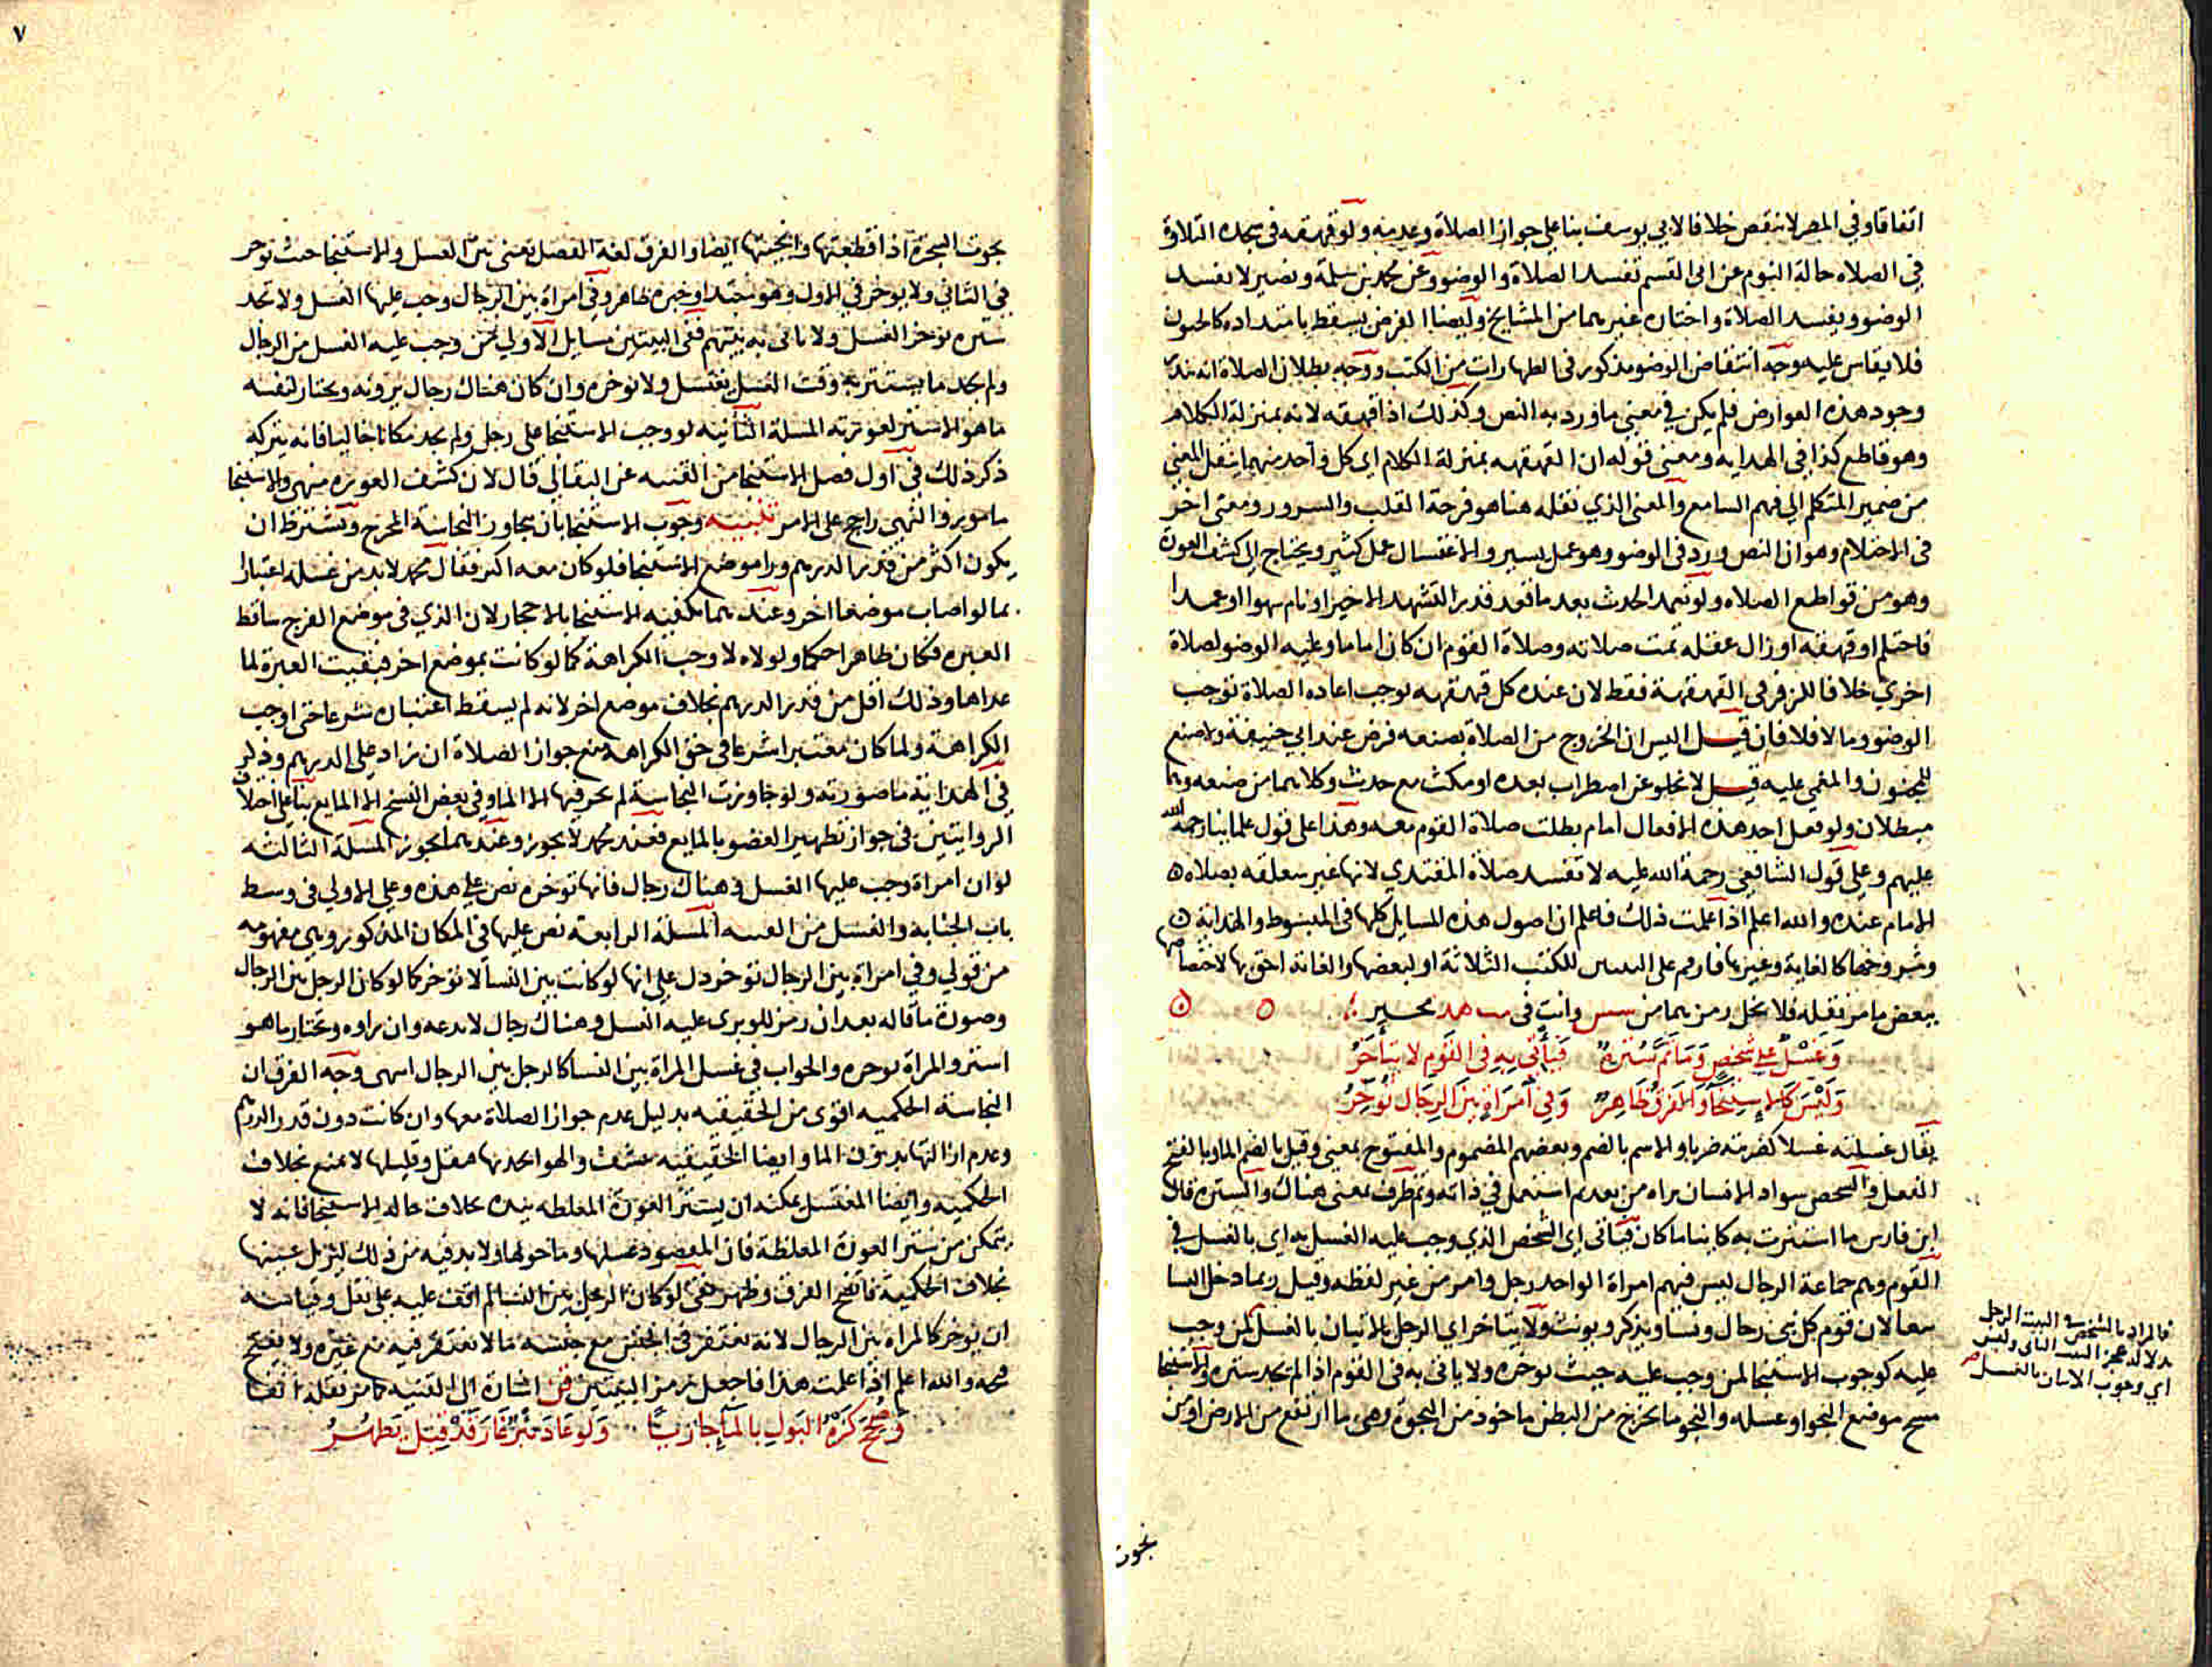 اتفاقا وفي المصر لا ينقض خلافا لابي يوسف بنا على جواز الصلاة وعدمه ولو قهقه في سجدة التلاوة
في الصلاه حالة النوم عن ابى القسم تفسد الصلاة والوضو وعن محمد بن سلمة ونصير لا يفسد
الوضوو يفسد الصلاة واختاره غيرهما من المشايخ وايضا الفرض يسقط بامتداده كالجنون
فلا يقاس عليه وجه انتقاض الوضو مذكور في الطهارات من الكتب ووجه بطلان الصلاة انه ندر
وجود هذه العوارض فلم يكن في معنى ما ورد به النص وكذلك اذا قهقه لانه بمنزلة الكلام
وهو قاطع كذا في الهدايه ومعنى قوله ان القهقهه بمنزلة الكلام اى كل واحد منهما ينقل المعني
من ضمير المتكلم الي فهم السامع والمعنى الذي تنقله هنا هو فرحة القلب والسرور ومعنى اخر
فى الاحتلام وهو ان النص ورد فى الوضو وهو عمل يسير والاغتسال عمل كثير ويحتاج الى كشف العورة
وهو من قواطع الصلاه ولو تعمد الحدث بعد ما قعد قدر التشهد الاخير او نام سهوا او عمدا
فاحتلم او قهقه او زال عقله تمت صلاته وصلاة القوم ان كان اماما وعليه الوضو لصلاة
اخري خلافا لزفر في القهقهة فقط لان عنده كل قهقهه توجب اعاده الصلاة توجب
الوضو وما لا فلا فان قيل اليس ان الخروج من الصلاة بصنعه فرض عند ابي حنيفة ولا صنع
للمجنون والمغمى عليه قيل لا يخلو عن اضطراب بعده او مكث مع حدث وكلاهما من صنعه وهما
مبطلان ولو فعل احد هذه الافعال امام بطلت صلاة القوم معه وهذا على قول علماينا رحمة الله
عليهم وعلى قول الشافعي رحمة الله عليه لا تفسد صلاة المقتدي لانها غير متعلقه بصلاه
الامام عنده والله اعلم اذا علمت ذلك فاعلم ان اصول هذه المسايل كلها فى المبسوط والهداية
وشروحها كالغاية وغيرها فارقم على البيتين للكتب الثلاثة او لبعضها والغاية احق بها لاختصاصها
ببعض ما مر نقله فلا يخل رمزهما من وانت في
وَغُسْلٌ على شَخصٍ وَمَا ثَمَّ سُتْرَةٌ فَيَأتي بِهِ في القَوم لا يتَأخَرُ
وَلَيْسَ كَالاسِتنجَا وَالفَرقُ ظَاهِرٌ وَفي امرَاةٍ بَينَ الرِجَال تُوخِّرُ
يقال غسلته غسلا كضربته ضربا والاسم بالضم وبعضهم المضموم والمفتوح بمعنى وقيل بالضم الما وبالفتح
الفعل والشخص سواد الانسان يراه من بعد ثم استعمل في ذاته وثم ظرف بمعنى هناك والسترة قال
ابن فارس ما استترت به كاينا ما كان فياتى اى الشخص الذي وجب عليه الغسل به اى بالغسل في
القوم وهم جماعة الرجال ليس فيهم امراة الواحد رجل وامرء من غير لفظه وقيل ربما دخل النسا
تبعا لان قوم كل نبى رجال ونسا ويذكر ويونث ولا يتاخر اي الرجل بالاتيان بالغسل لمن وجب
عليه كوجوب الاستنجا لمن وجب عليه حيث يوخره ولا ياتى به في القوم اذا لم يجد سترة والاستنجا
مسح موضع النجو او غسله والنجو ما يخرج من البطن ماخوذ من النجوة وهى ما ارتفع من الارض او من
فالمراد بالشخص في البيت الرجل
بدلالة عجز البيت الثاني وليس
اي وجوب الاتيان بالغسل
نجوت
٧
نجوت الشجرة اذا قطعتها وانجيتها ايضا والفرق لغة الفصل يعنى بين الغسل والاستنجا حيث يوخر
في الثاني ولا يوخر في الاول وهو مبتدا وخبره ظاهر وفي امراة بين الرجال وجب عليها الغسل ولا تجد
ستره توخر الغسل ولا تاتى به بينهم ففى البيتين مسايل الاولي من وجب عليه الغسل من الرجال
ولم يجد ما يستتر به وقت الغسل يغتسل ولا يوخره وان كان هناك رجال يرونه ويختار لنفسه
ما هو الاستر لعورته المسلة الثانيه لو وجب الاستنجا على رجل ولم يجد مكانا خاليا فانه يتركه
ذكر ذلك في اول فصل الاستنجا من القنيه عن البقالى قال لان كشف العوره منهى والاستنجا
مامور والنهى راجح على الامر تنبيه وجوب الاستنجا بان يجاوز النجاسة المخرج ويشترط ان
يكون اكثر من قدر الدرهم ورا موضع الاستنجا فلو كان معه اكثر فقال محمد لا بد من غسله اعتبارا
بما لو اصاب موضعا اخر وعندهما يكفيه الاستنجا بالاحجار لان الذي في موضع الفرج ساقط
العبره فكان طاهرا حكما ولولاه لاوجب الكراهة كما لو كانت بموضع اخر فبقيت العبرة لما
عداها وذلك اقل من قدر الدرهم بخلاف موضع اخر لانه لم يسقط اعتباره شرعا حتى اوجب
الكراهة ولما كان معتبرا شرعا في حق الكراهة منع جواز الصلاة ان زاد على الدرهم وذكر
في الهداية ما صورته ولو جاوزت النجاسة لم يجز فيها الا الما وفي بعض النسخ الا المايع بنا على اختلاف
الروايتين في جواز تطهير العضو بالمايع فعند محمد لا يجوز وعندهما يجوز المسلة الثالثه
لو ان امراة وجب عليها الغسل وهناك رجال فانها توخره نص على هذه وعلى الاولي في وسط
باب الجنابة والغسل من القنيه المسلة الرابعة نص عليها في المكان المذكور وهي مفهومه
من قولي وفي امراة بين الرجال توخر دل على انها لو كانت بين النسا لا توخر كما لو كان الرجل بين الرجال
وصورة ما قاله بعد ان رمز للوبرى عليه الغسل وهناك رجال لا يدعه وان راوه ويختار ما هو
استر والمراة توخره والجواب في غسل المراة بين النسا كالرجل بين الرجال انتهى وجه الفرق ان
النجاسة الحكميه اقوى من الحقيقيه بدليل عدم جواز الصلاة معها وان كانت دون قدر الدرهم
وعدم ازالتها بدون الما وايضا الحقيقيه وقليلها لا يمنع بخلاف
الحكميه وايضا المغتسل يمكنه ان يستتر العورة المغلظه بيده بخلاف حاله الاستنجا فانه لا
يتمكن من ستر العورة المغلظة فان المقصود غسلها وما حولها ولا بد فيه من ذلك ليزيل عينها
بخلاف الحكمية فاتضح الفرق وظهر بقى لو كان الرجل بين النسا لم اقف عليه على نقل وقياسه
ان يوخر كالمراه بين الرجال لانه يغتفر في الجنس مع جنسه ما لا يغتفر فيه مع غيره ولا يقبح
قبحه والله اعلم اذا علمت هذا فاجعل رمز البيتين قن اشارة الى القنيه كما مر نقله انفا
وَصُحِّحَ كَرْهُ البَول بالمَآ جَاريًا وَلَو عَادَ قَدْ قِيلَ يَطهُرُ